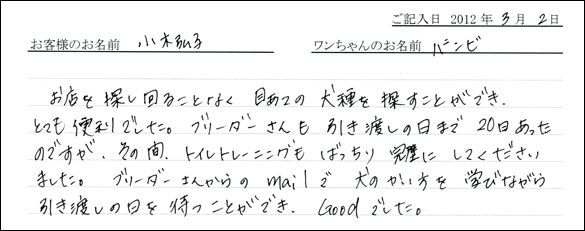 ご記入日 2012 年 3 月 2 日
お客様のお名前 小木弘子 ワンちゃんのお名前 バンビ
お店を探し回ることなく 目あての 犬種を 探すことができ、
とても便利でした。ブリーダーさんも 引き渡しの日まで 20日あった
のですが、その間、トイレトレーニングも ばっちり 完璧に してください
ました。ブリーダーさんからの mailで 犬の かい方を 学びながら
引き渡しの日を 待つことができ、Goodでした。